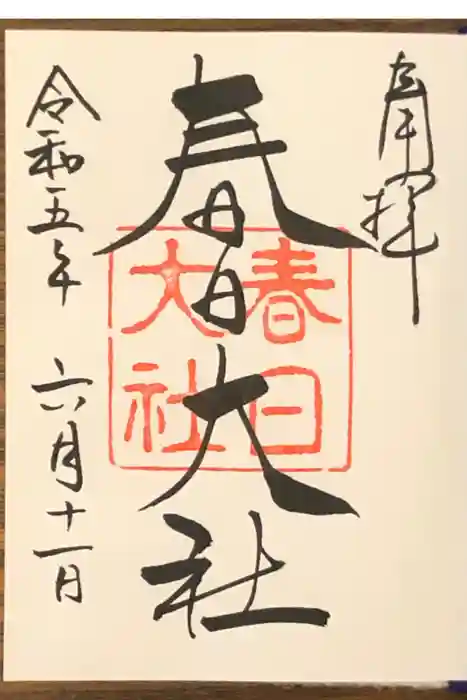 奉拝
春日大社
春日
大社
令和五年 六月十一日